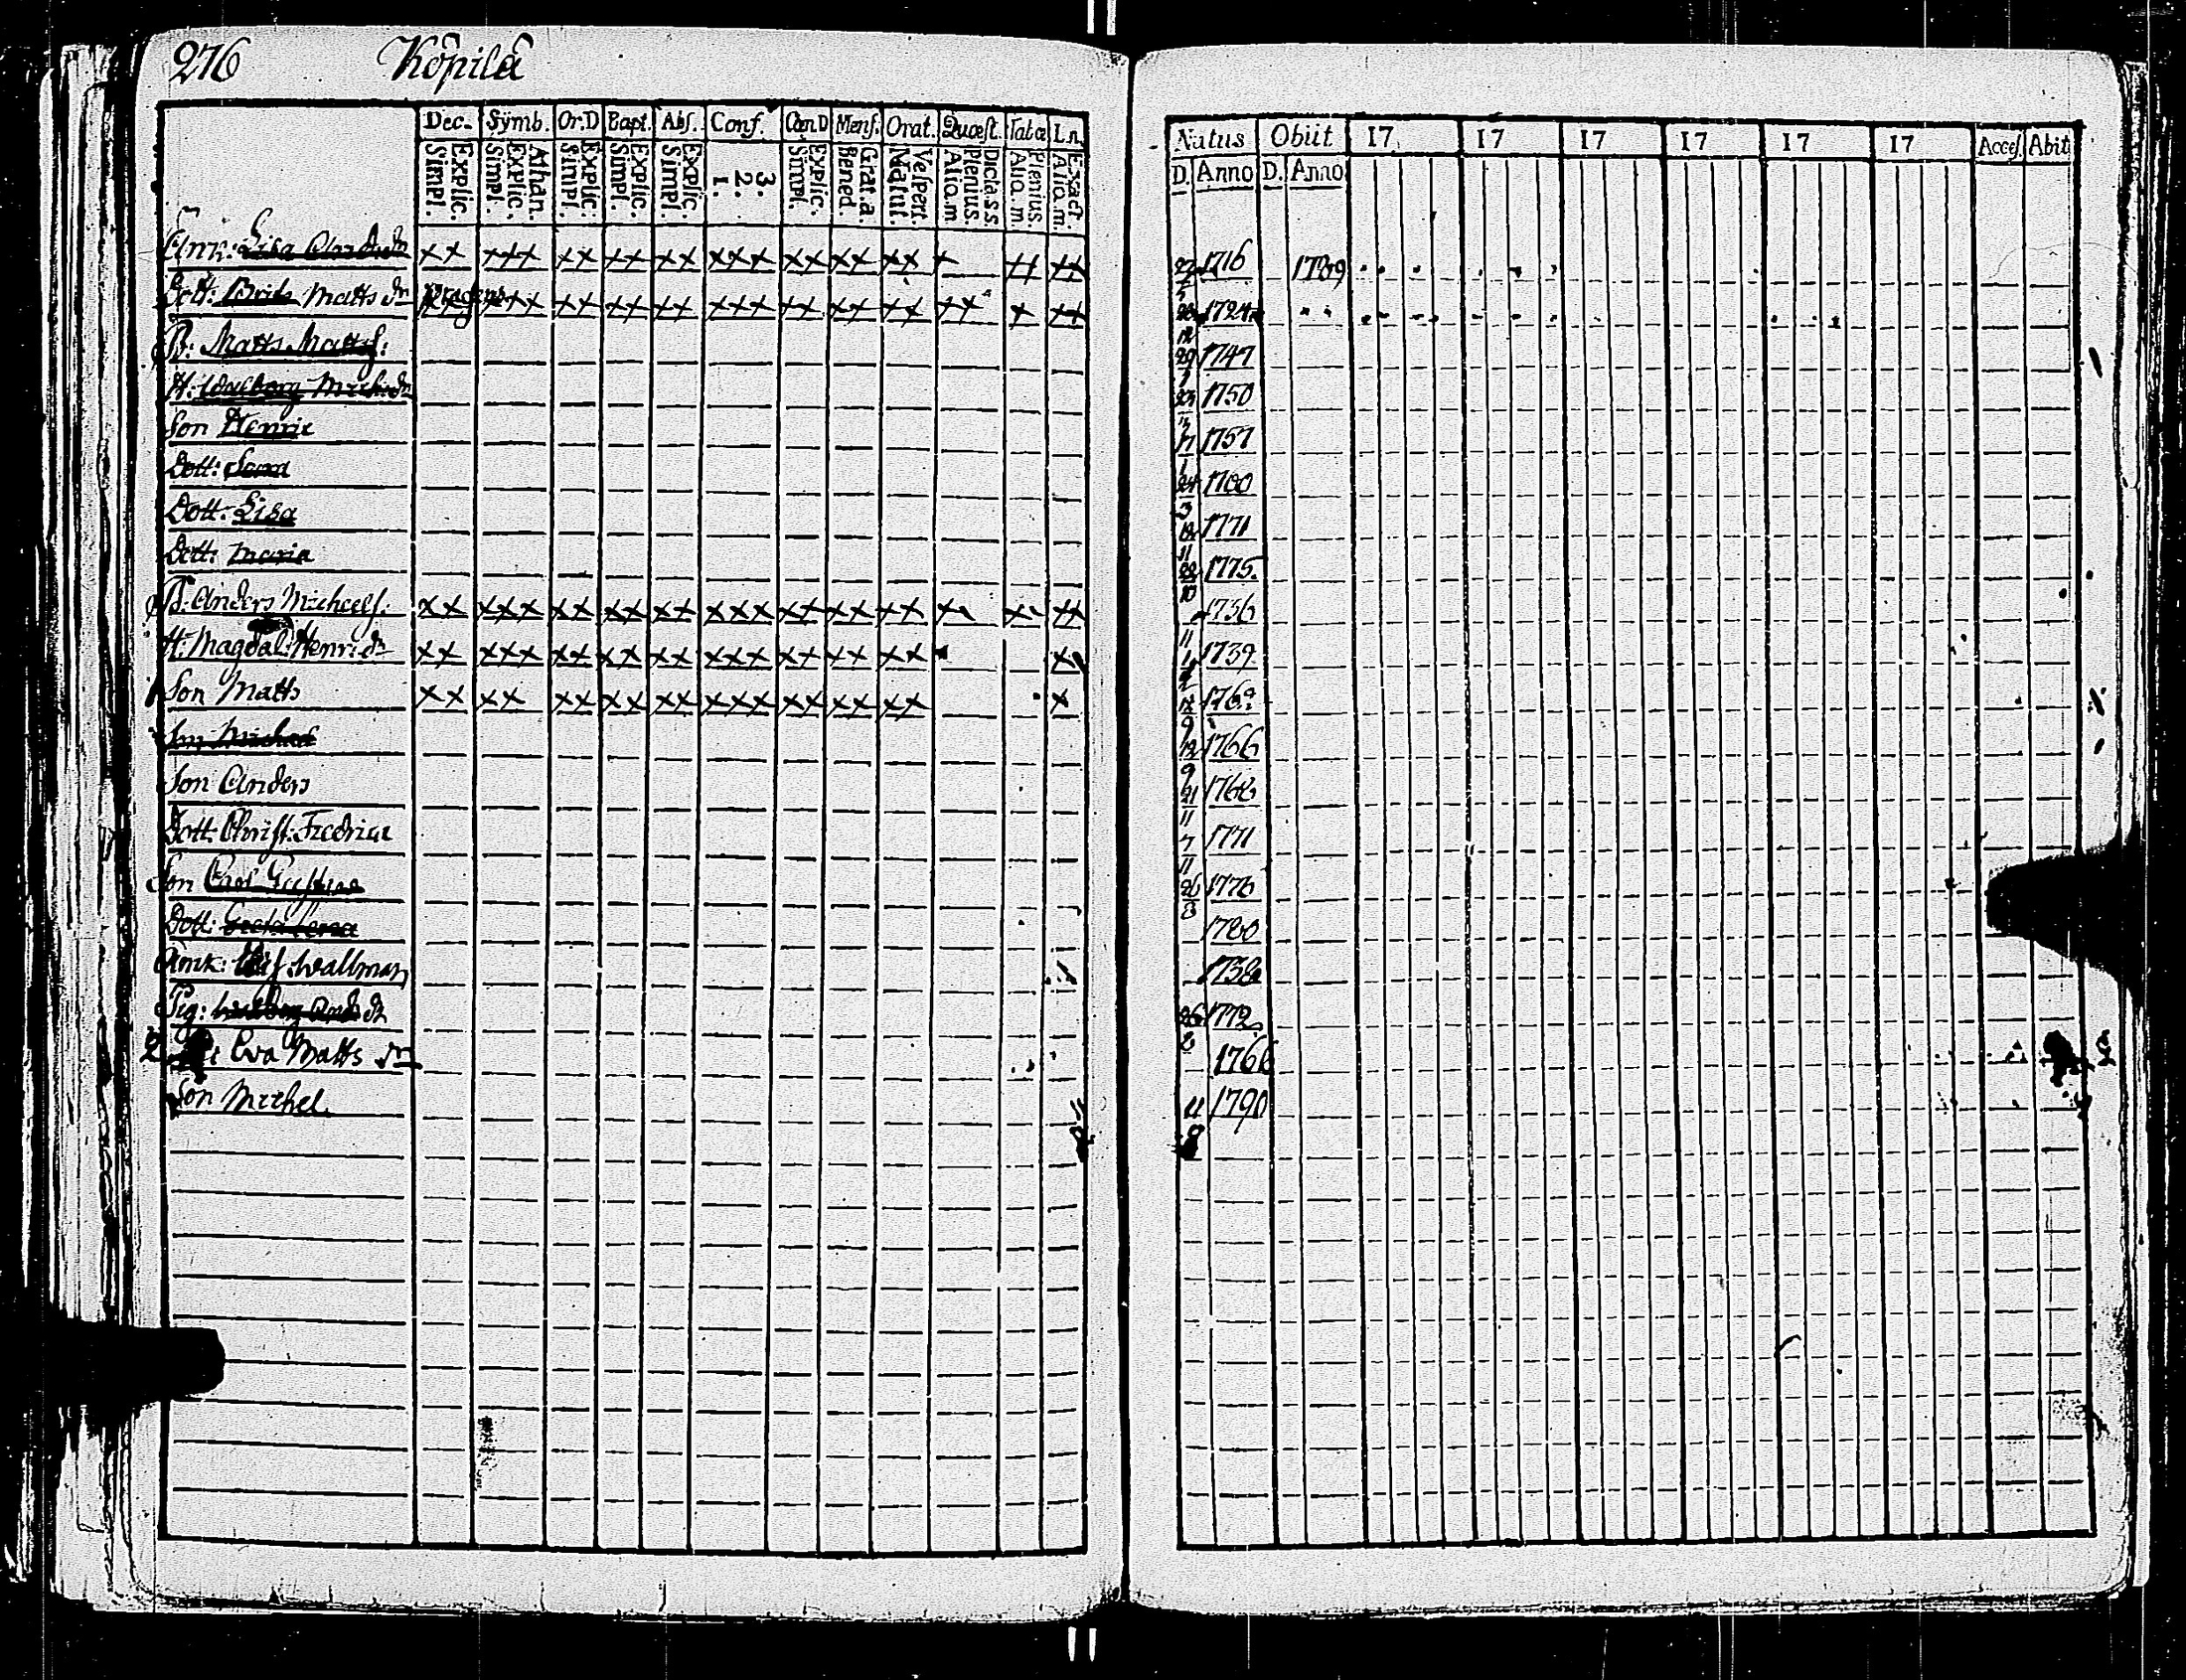 276 Köpilä
Dec. Symb. Or.D Bapt. Abs. Conf. Cœn.D Mens. Orat. Quæst. Tabæ Ln.
Explic. Simpl. Athan. Explic. Simpl. Explic. Simpl. Explic. Simpl. Explic. Simpl. 3. 2. 1. Explic. Simpl. Grat.a. Bened. Vespert. Matut. Dicta.s.s. Plenius. Aliq.m. Plenius. Aliq.m. Exact Aliq.m.
Natus Obiit 17 17 17 17 17 17 Access. Abit
D. Anno D. Anno
Enk: Lisa xx xxx xx xx xx xxx xx xx xx x xx xx 1716 1789
Dott: Brita Matts dr xx xx xx xxx xx xx xx xx x xx
B: Matts Matts: 1747
H: Walborg Mich dr 1750
Son Henric 1757
Dott: Sara
Dott: Lisa 3 1771
Dott: Maria 11 1775.
B: Anders Michaels: xx xxx xx xx xx xxx xx xx xx x x xx 10 1736
H: Magdal: Henr: dr xx xxx xx xx xx xxx xx xx xx x 11 1739
Son Matts xx xx xx xx xx xxx xx xx xx x
Son Michael 9 1766
Son Anders 9 21 1768
Dott Christ: Fredrica 11 7 1771
Son Carl Gustava 11 26 1776
Dott: Greta Lena 8 1780
Enk: Wallman 1738
Pig: Walborg And dr 26 1772
Eva Matts dr 8 1766
Son Michel 11 1790